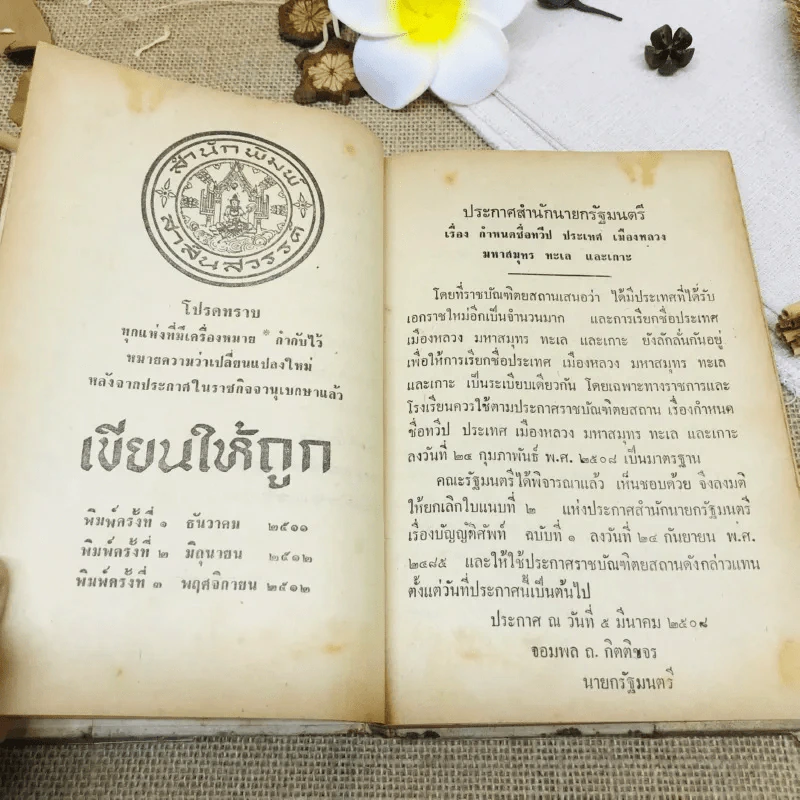 สำนักพิมพ์
สาส์นสวรรค์
โปรดทราบ
ทุกแห่งที่มีเครื่องหมาย * กำกับไว้
หมายความว่าเปลี่ยนแปลงใหม่
หลังจากประกาศในราชกิจจานุเบกษาแล้ว
เขียนให้ถูก
พิมพ์ครั้งที่ ๑ ธันวาคม ๒๕๑๑
พิมพ์ครั้งที่ ๒ มิถุนายน ๒๕๑๒
พิมพ์ครั้งที่ ๓ พฤศจิกายน ๒๕๑๒
ประกาศสำนักนายกรัฐมนตรี
เรื่อง กำหนดชื่อทวีป ประเทศ เมืองหลวง
มหาสมุทร ทะเล และเกาะ
โดยที่ราชบัณฑิตยสถานเสนอว่า ได้มีประเทศที่ได้รับ
เอกราชใหม่อีกเป็นจำนวนมาก และการเรียกชื่อประเทศ
เมืองหลวง มหาสมุทร ทะเล และเกาะ ยังลักลั่นกันอยู่
เพื่อให้การเรียกชื่อประเทศ เมืองหลวง มหาสมุทร ทะเล
และเกาะ เป็นระเบียบเดียวกัน โดยเฉพาะทางราชการและ
โรงเรียนควรใช้ตามประกาศราชบัณฑิตยสถาน เรื่องกำหนด
ชื่อทวีป ประเทศ เมืองหลวง มหาสมุทร ทะเล และเกาะ
ลงวันที่ ๒๔ กุมภาพันธ์ พ.ศ. ๒๕๐๘ เป็นมาตรฐาน
คณะรัฐมนตรีได้พิจารณาแล้ว เห็นชอบด้วย จึงลงมติ
ให้ยกเลิกใบแนบที่ ๒ แห่งประกาศสำนักนายกรัฐมนตรี
เรื่องบัญญัติศัพท์ ฉบับที่ ๑ ลงวันที่ ๒๔ กันยายน พ.ศ.
๒๔๘๕ และให้ใช้ประกาศราชบัณฑิตยสถานดังกล่าวแทน
ตั้งแต่วันที่ประกาศนี้เป็นต้นไป
ประกาศ ณ วันที่ ๕ มีนาคม ๒๕๐๘
จอมพล ถ. กิตติขจร
นายกรัฐมนตรี